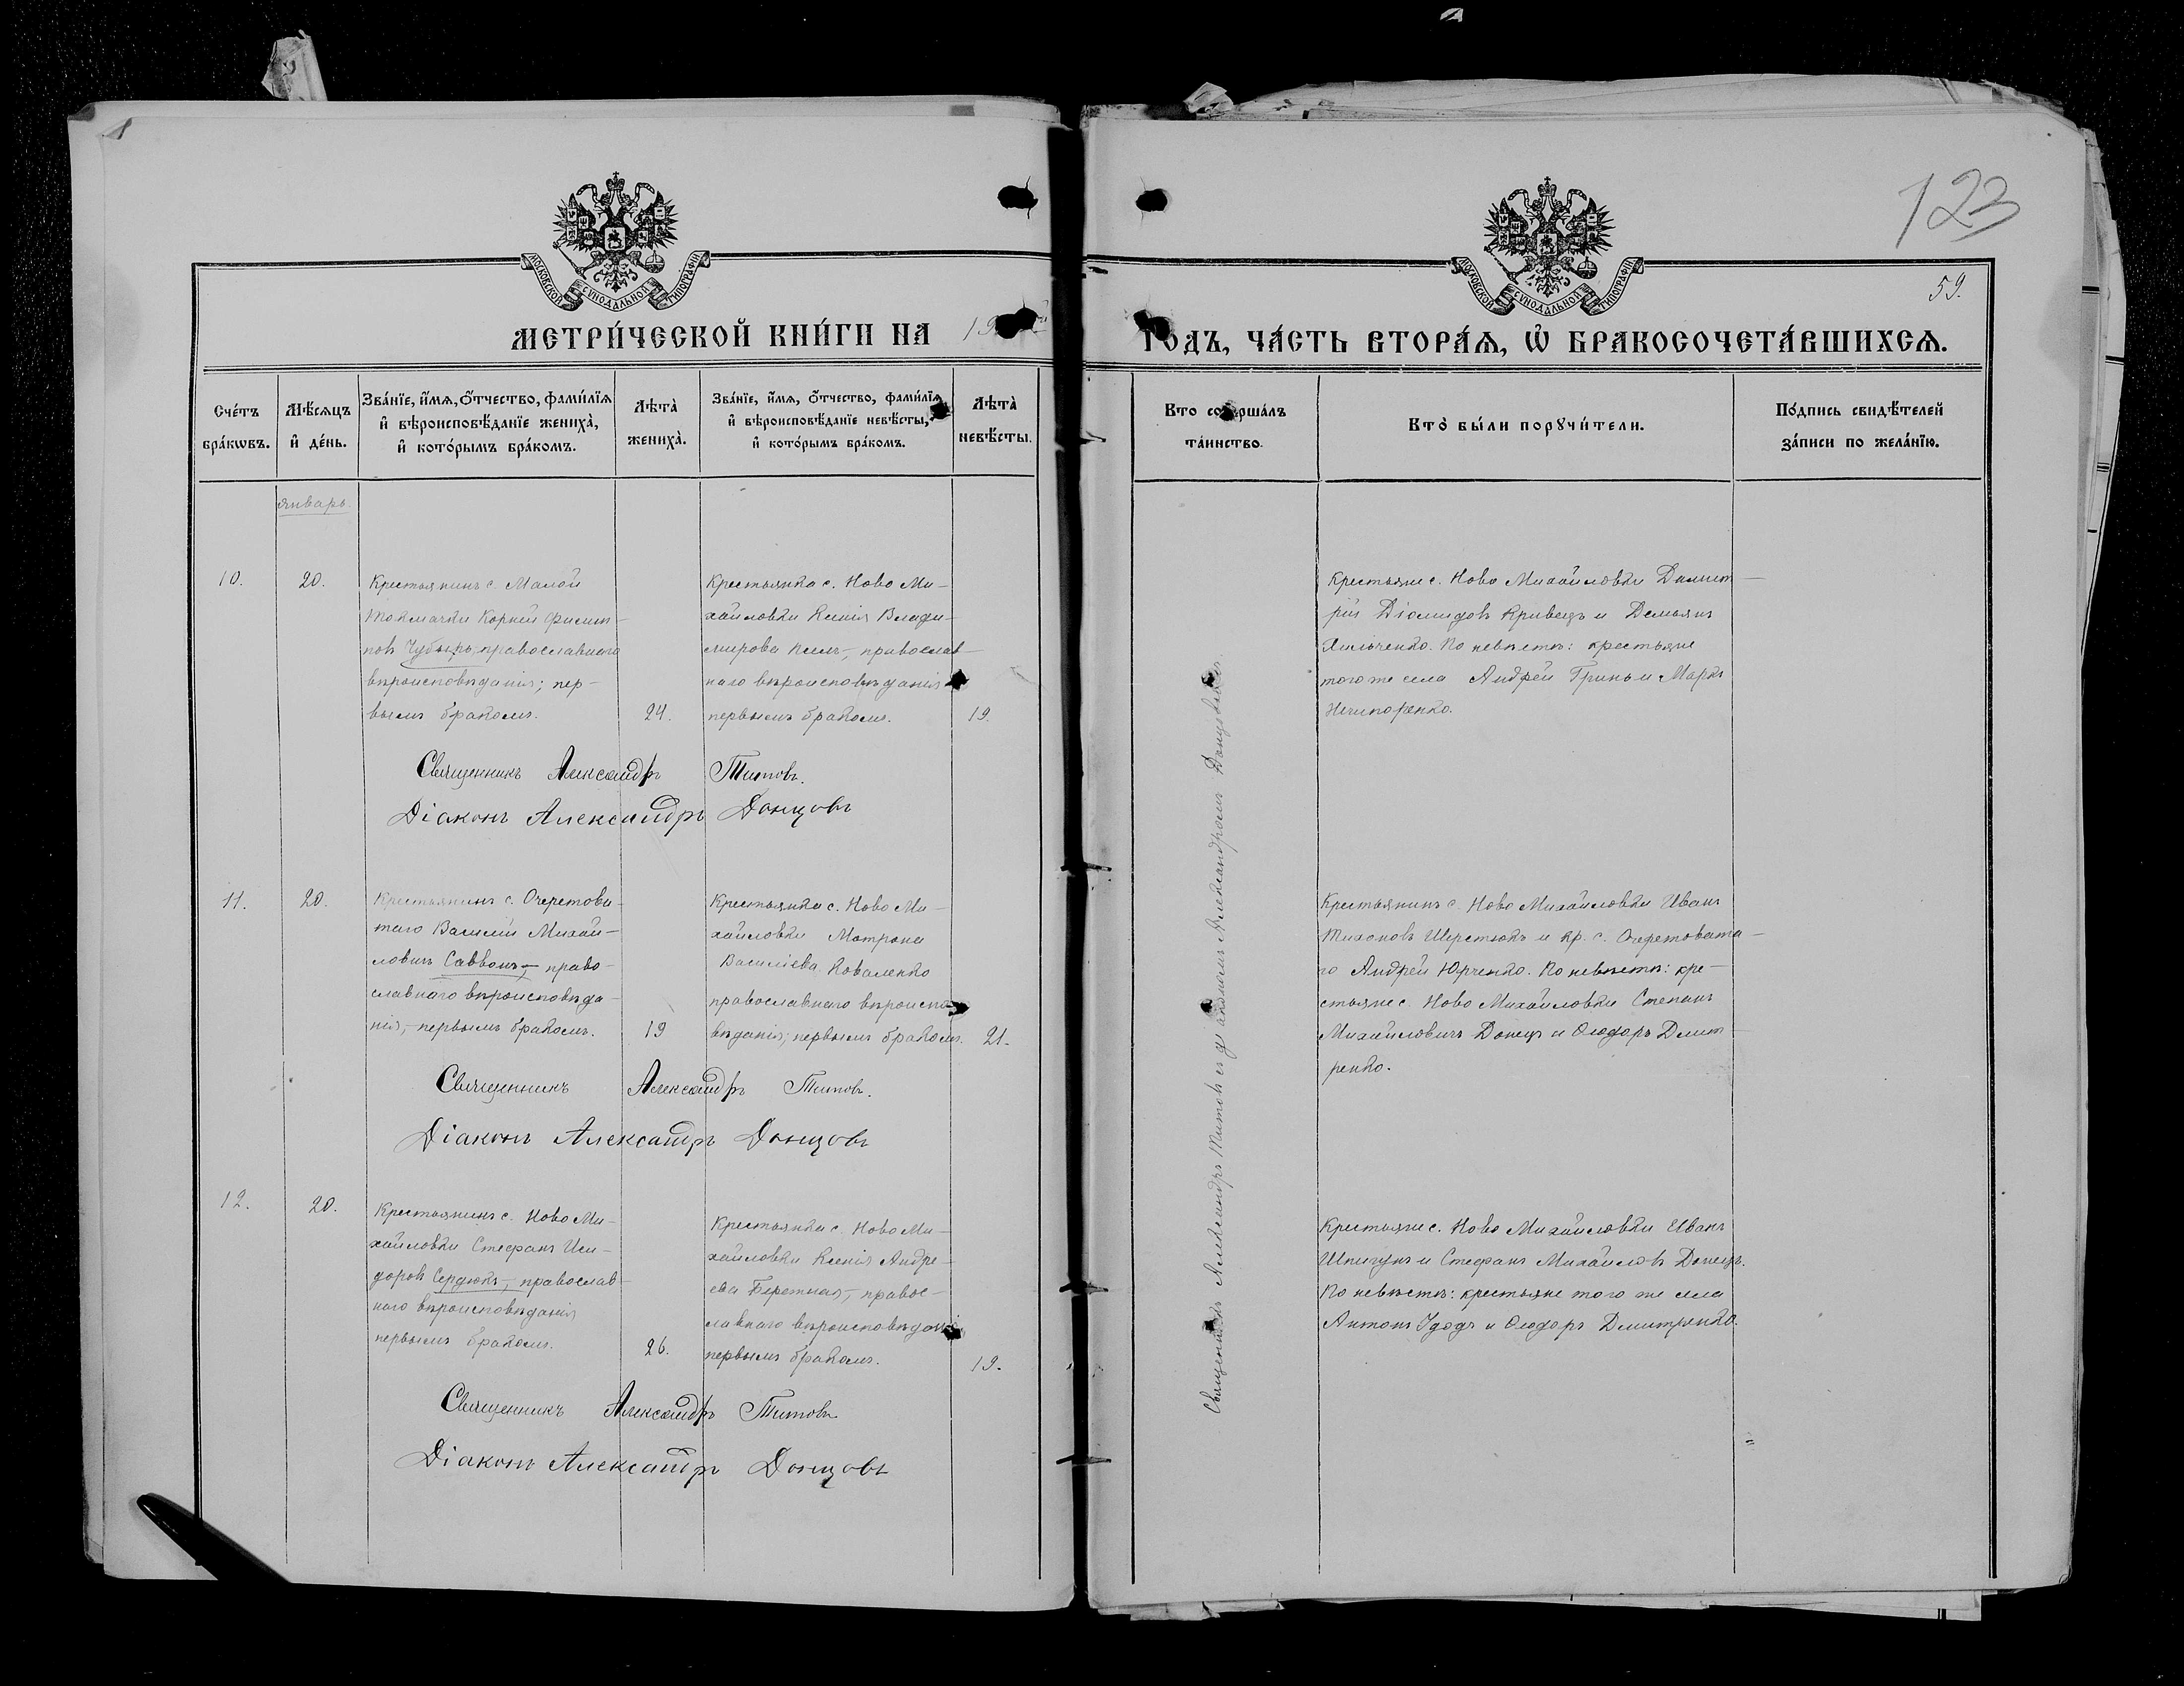 123
59.
МОСКОВСКОЙ СѴНОДАЛЬНОЙ ТИПОГРАФІИ
МОСКОВСКОЙ СѴНОДАЛЬНОЙ ТИПОГРАФІИ
МЕТРИ́ЧЕСКОЙ КНИ́ГИ НА
ГОДЪ, ЧА́СТЬ ВТОРА́Я, Ѽ БРАКОСОЧЕТА́ВШИХСЯ.
Сче́тъ
бра́кωвъ.
Мѣ́сяцъ
и҆ де́нь.
Зва́нїе, и҆́мя, ѻ҆́тчество, фами́лїя
и҆ вѣроисповѣ́данїе жениха̀,
и҆ кото́рымъ бра́комъ.
Лѣта̀
жениха̀.
Зва́нїе, и҆́мя, ѻ҆́тчество, фами́лїя
и҆ вѣроисповѣ́данїе невѣ́сты,
и҆ кото́рымъ бра́комъ.
Лѣта̀
невѣ́сты.
Кто соверша́лъ
та́инство.
Кто̀ бы́ли порꙋчи́тели.
По́дпись свидѣ́телей
за́писи по жела́нїю.
Январь.
10.
20.
Крестьянинъ с. Малой
Токмачки Корней Филип-
повъ Чубырь, православнаго
вѣроисповѣданія; пер-
вымъ бракомъ.
24.
Крестьянка с. Ново Ми-
хайловки Ксенія Влади-
мирова, православ-
наго вѣроисповѣданія
первымъ бракомъ.
19.
Крестьяне с. Ново Михайловки Димит-
рій Діомидовъ Кривецъ и Демьянъ
Хильченко. По невѣстѣ: крестьяне
того же села Андрей Гринь и Маркъ
Нечипоренко.
Священникъ Александръ Титовъ.
Діаконъ Александръ Донцовъ
11.
20.
Крестьянинъ с. Очеретова-
таго Василій Михай-
ловичъ Саввонъ, право-
славнаго вѣроисповѣда-
нія, первымъ бракомъ.
19
Крестьянка с. Ново Ми-
хайловки Матрона
Василіева Коваленко
православнаго вѣроиспо-
вѣданія; первымъ бракомъ.
21.
Крестьянинъ с. Ново Михайловки Иванъ
Тихоновъ Шерстюкъ и кр. с. Очеретовата-
го Андрей Юрченко. По невѣстѣ: кре-
стьяне с. Ново Михайловки Степанъ
Михайловичъ Донецъ и Ѳеодоръ Дмит-
ренко.
Священникъ Александръ Титовъ.
Діаконъ Александръ Донцовъ
12.
20.
Крестьянинъ с. Ново Ми-
хайловки Стефанъ Иси-
доровъ Сердюкъ, православ-
наго вѣроисповѣданія
первымъ бракомъ.
26.
Крестьянка с. Ново Ми-
хайловки Ксенія Андре-
ева Бережная, правос-
лавнаго вѣроисповѣданія
первымъ бракомъ.
19.
Крестьяне с. Ново Михайловки Иванъ
Шпигунъ и Стефанъ Михайловъ Донецъ.
По невѣстѣ: крестьяне того же села
Антонъ Удодъ и Ѳеодоръ Дмитренко.
Священникъ Александръ Титовъ
Діаконъ Александръ Донцовъ
Священникъ Александръ Титовъ съ діакономъ Александромъ Донцовымъ.